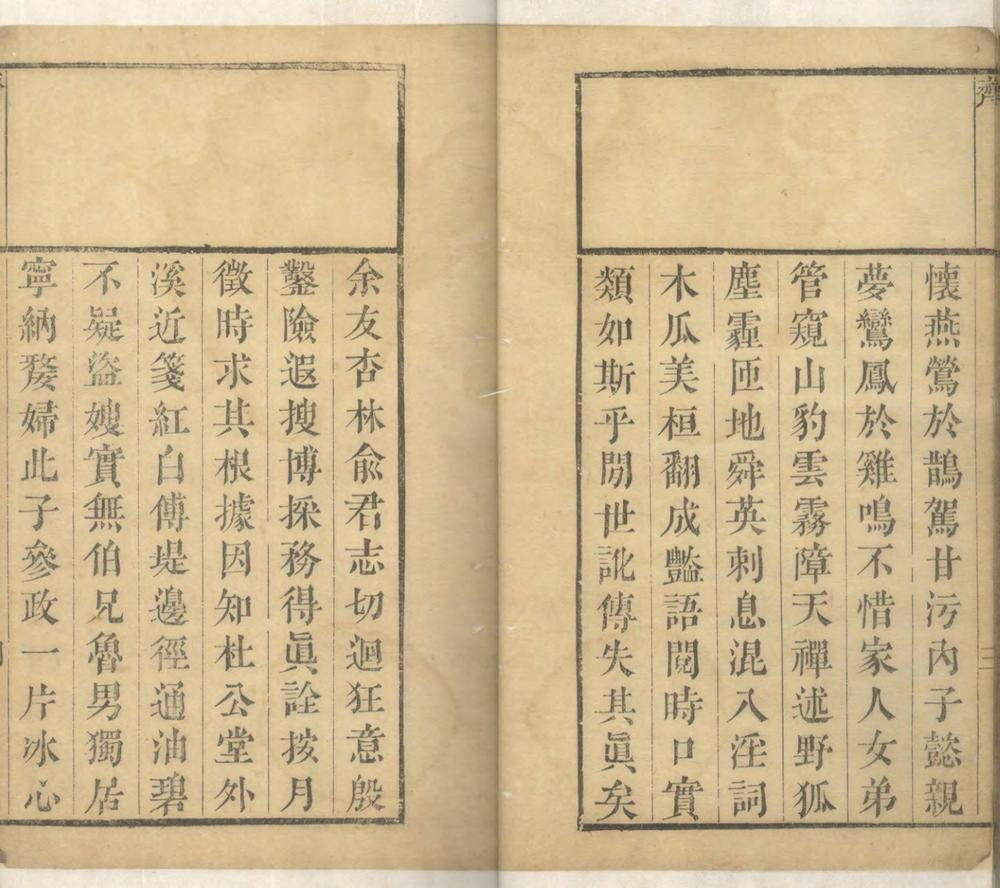 懷燕鶯於鵲駕甘污內子懿親
夢鸞鳳於雞鳴不惜家人女弟
管窺山豹雲霧障天禪述野狐
塵霾匝地舜英刺息混入淫詞
木瓜美桓翻成豔語閱時口實
類如斯乎閒世訛傳失其眞矣
余友杏林俞君志切迴狂意殷
鑿險遐搜博採務得眞詮按月
徵時求其根據因知杜公堂外
溪近箋紅白傅堤邊徑通油碧
不疑盜嫂實無伯兄魯男獨居
寧納嫠婦此子參政一片冰心